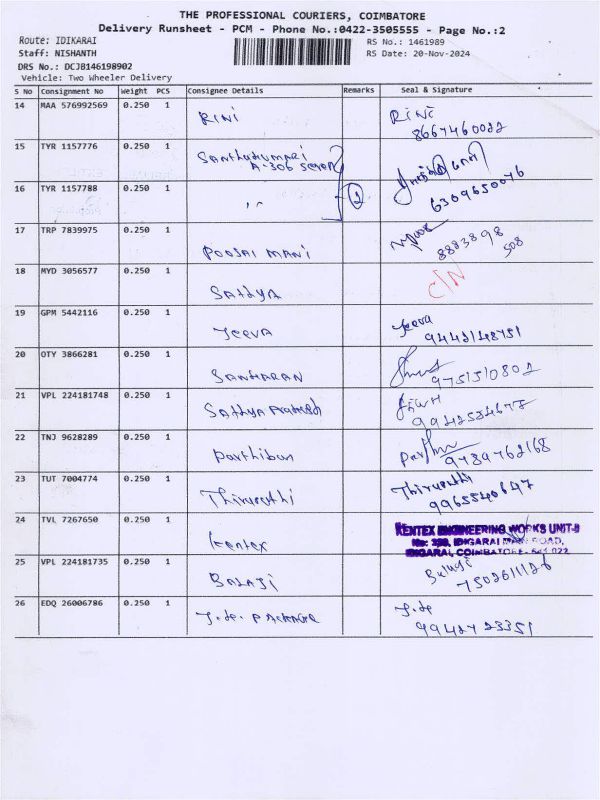 THE PROFESSIONAL COURIERS, COIMBATORE
Delivery Runsheet - PCM - Phone No.:0422-3505555 - Page No.:2
Route: IDIKARAI
RS No.: 1461989
Staff: NISHANTH
RS Date: 20-Nov-2024
DRS No.: DCJB146198902
Vehicle: Two Wheeler Delivery
S No Consignment No Weight PCS Consignee Details Remarks Seal & Signature
14 MAA 576992569 0.250 1 RINI RINI
8667460022
15 TYR 1157776 0.250 1 Santhyakumari
A-306
16 TYR 1157788 0.250 1 ,, 2 6309650076
17 TRP 7839975 0.250 1 POOSAI MANI 8883898
508
18 MYD 3056577 0.250 1 SATHYA C/N
19 GPM 5442116 0.250 1 JEEVA Jeeva
9442148751
20 OTY 3866281 0.250 1 SANKARAN
9751510802
21 VPL 224181748 0.250 1 Sathya Prakash
22 TNJ 9628289 0.250 1 Parthiban
9789762168
23 TUT 7004774 0.250 1 Thirupathi Thirupathi
9965540647
24 TVL 7267650 0.250 1 Kentex KENTEX ENGINEERING WORKS UNIT-II
IDIGARAI MAIN ROAD,
IDIGARAI, COIMBATORE - 641 022
25 VPL 224181735 0.250 1 BALAJI Balaji
7502611126
26 EDQ 26006786 0.250 1
9942723351